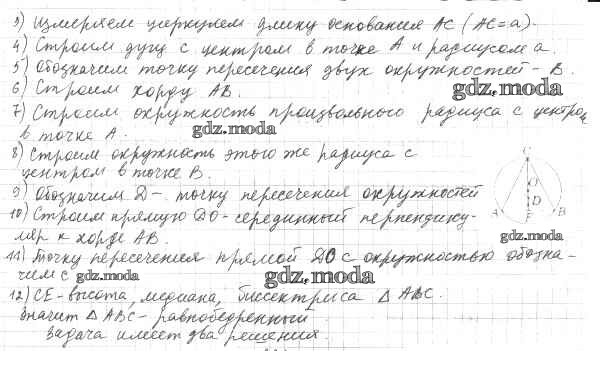 3) Измеряем циркулем длину основания AC (AC=a).
4) Строим дугу с центром в точке A и радиусом a.
5) Обозначим точку пересечения двух окружностей - B.
6) Строим хорду AB.
gdz.moda
7) Строим окружность произвольного радиуса с центром
в точке A.
gdz.moda
8) Строим окружность этого же радиуса с
центром в точке B.
9) Обозначим D - точку пересечения окружностей
10) Строим прямую DO - серединный перпендику-
ляр к хорде AB.
C
O
D
A
E
B
gdz.moda
11) Точку пересечения прямой DO с окружностью обозна-
чим C
gdz.moda
gdz.moda
12) CE - высота, медиана, биссектриса △ ABC.
Значит △ ABC - равнобедренный
Задача имеет два решения.